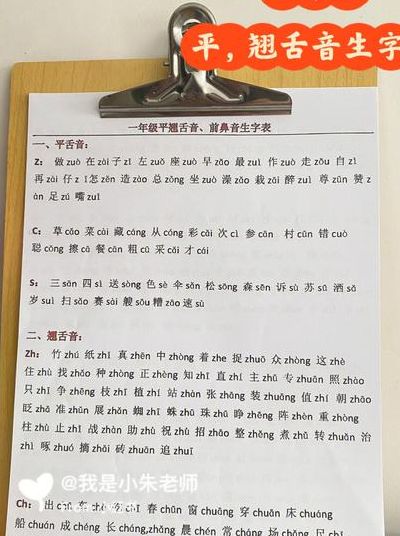 平，翘舌音生字
一年级平翘舌音、前鼻音生字表
一、平舌音：
Z： 做 zuò 在 zài 子 zǐ 左 zuǒ 座 zuò 早 zǎo 最 zuì 作 zuò 走 zǒu 自 zì
再 zài 仔 zǐ 怎 zěn 造 zào 总 zǒng 坐 zuò 澡 zǎo 栽 zāi 醉 zuì 尊 zūn 赞 z
àn 足 zú 嘴 zuǐ
C： 草 cǎo 菜 cài 藏 cáng 从 cóng 彩 cǎi 次 cì 参 cān 村 cūn 错 cuò
聪 cōng 擦 cā 餐 cān 粗 cū 采 cǎi 才 cái
S： 三 sān 四 sì 送 sòng 色 sè 伞 sǎn 松 sōng 森 sēn 诉 sù 苏 sū 洒 sǎ
岁 suì 扫 sǎo 赛 sài 艘 sōu 糟 zāo 速 sù
二、翘舌音：
Zh： 竹 zhú 纸 zhǐ 真 zhēn 中 zhòng 着 zhe 捉 zhuō 众 zhòng 这 zhè
住 zhù 找 zhǎo 种 zhòng 正 zhèng 知 zhī 直 zhí 主 zhǔ 专 zhuān 照 zhào
只 zhǐ 争 zhēng 枝 zhī 植 zhí 站 zhàn 张 zhāng 装 zhuāng 值 zhí 朝 zhāo
眨 zhǎ 准 zhǔn 展 zhǎn 蜘 zhī 蛛 zhū 珠 zhū 睁 zhēng 阵 zhèn 重 zhòng
柱 zhù 止 zhǐ 战 zhàn 助 zhù 祝 zhù 招 zhāo 整 zhěng 煮 zhǔ 转 zhuǎn 治
zhì 啄 zhuó 摘 zhāi 砖 zhuān 追 zhuī
@我是小朱老师
Ch： 出 chū 车 chē 春 chūn 窗 chuāng 穿 chuān 床 chuáng
船 chuán 成 chéng 长 cháng,zhǎng 晨 chén 常 cháng 场 chǎng 尺 chǐ